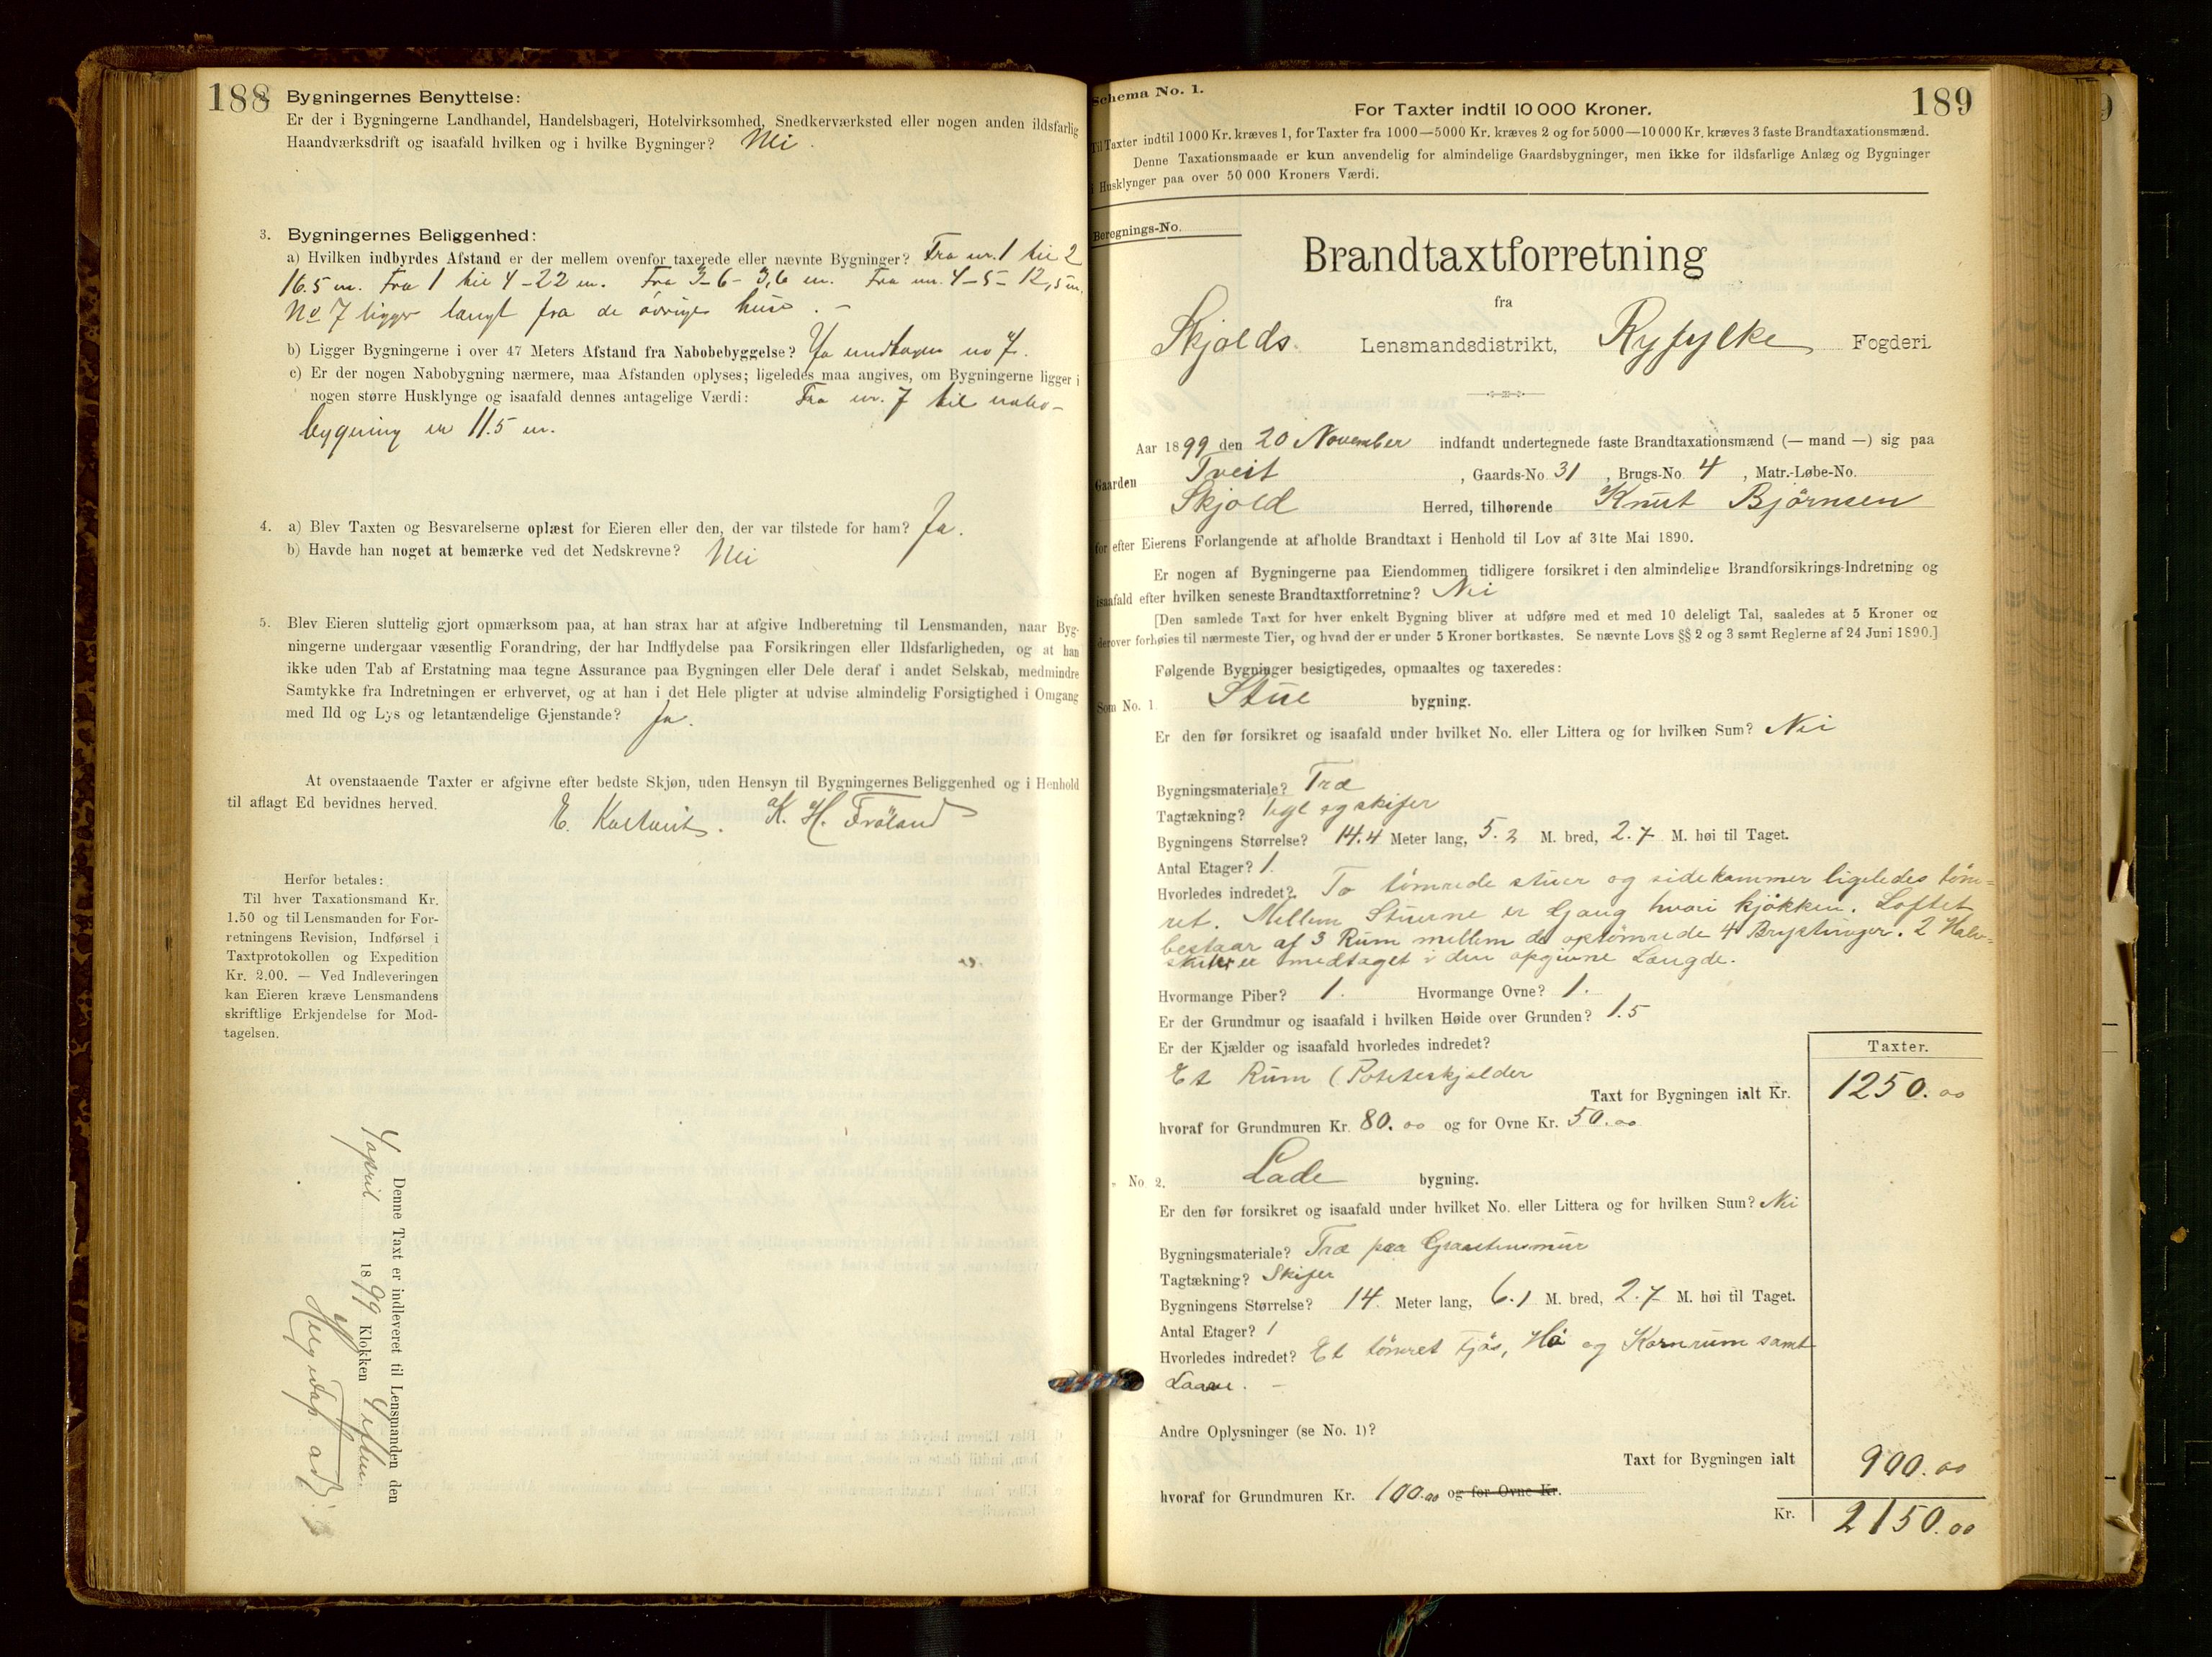 188
Bygningernes Benyttelse:
Er der i Bygningerne Landhandel, Handelsbageri, Hotelvirksomhed, Snedkerværksted eller nogen anden ildsfarlig
Haandværksdrift og isaafald hvilken og i hvilke Bygninger? Nei.
3. Bygningernes Beliggenhed:
a) Hvilken indbyrdes Afstand er der mellem ovenfor taxerede eller nævnte Bygninger? Fra nr. 1 til 2
16.5 m. Fra 1 til 4 – 22 m. Fra 3–6 – 3,6 m. Fra nr. 4–5 – 12,5 m.
No 7 ligger langt fra de øvrige huse. –
b) Ligger Bygningerne i over 47 Meters Afstand fra Nabobebyggelse? Ja undtagen no 7.
c) Er der nogen Nabobygning nærmere, maa Afstanden oplyses; ligeledes maa angives, om Bygningerne ligger i
nogen større Husklynge og isaafald dennes antagelige Værdi: Fra nr. 7 til nabo-
bygning er 11.5 m.
4. a) Blev Taxten og Besvarelserne oplæst for Eieren eller den, der var tilstede for ham? Ja.
b) Havde han noget at bemærke ved det Nedskrevne? Nei
5. Blev Eieren sluttelig gjort opmærksom paa, at han strax har at afgive Indberetning til Lensmanden, naar Byg-
ningerne undergaar væsentlig Forandring, der har Indflydelse paa Forsikringen eller Ildsfarligheden, og at han
ikke uden Tab af Erstatning maa tegne Assurance paa Bygningen eller Dele deraf i andet Selskab, medmindre
Samtykke fra Indretningen er erhvervet, og at han i det Hele pligter at udvise almindelig Forsigtighed i Omgang
med Ild og Lys og letantændelige Gjenstande? Ja.
At ovenstaaende Taxter er afgivne efter bedste Skjøn, uden Hensyn til Bygningernes Beliggenhed og i Henhold
til aflagt Ed bevidnes herved.
E. K. H. Frøland
Herfor betales:
Til hver Taxationsmand Kr.
1.50 og til Lensmanden for For-
retningens Revision, Indførsel i
Taxtprotokollen og Expedition
Kr. 2.00. — Ved Indleveringen
kan Eieren kræve Lensmandens
skriftlige Erkjendelse for Mod-
tagelsen.
Denne Taxt er indleveret til Lensmanden den
4 april 1899 Klokken 4 efter.
189
Schema No. 1.
For Taxter indtil 10 000 Kroner.
Til Taxter indtil 1000 Kr. kræves 1, for Taxter fra 1000—5000 Kr. kræves 2 og for 5000—10 000 Kr. kræves 3 faste Brandtaxationsmænd.
Denne Taxationsmaade er kun anvendelig for almindelige Gaardsbygninger, men ikke for ildsfarlige Anlæg og Bygninger
i Husklynger paa over 50 000 Kroners Værdi.
Beregnings-No.
Brandtaxtforretning
fra
Skjolds Lensmandsdistrikt, Ryfylke Fogderi.
Aar 1899 den 20 November indfandt undertegnede faste Brandtaxationsmænd (— mand —) sig paa
Gaarden Tveit, Gaards-No. 31, Brugs-No. 4, Matr.-Løbe-No.
Skjold Herred, tilhørende Knut Bjørnsen
for efter Eierens Forlangende at afholde Brandtaxt i Henhold til Lov af 31te Mai 1890.
Er nogen af Bygningerne paa Eiendommen tidligere forsikret i den almindelige Brandforsikrings-Indretning og
isaafald efter hvilken seneste Brandtaxtforretning? Nei
[Den samlede Taxt for hver enkelt Bygning bliver at udføre med et med 10 deleligt Tal, saaledes at 5 Kroner og
derover forhøies til nærmeste Tier, og hvad der er under 5 Kroner bortkastes. Se nævnte Lovs §§ 2 og 3 samt Reglerne af 24 Juni 1890.]
Følgende Bygninger besigtigedes, opmaaltes og taxeredes:
Som No. 1. Stue bygning.
Er den før forsikret og isaafald under hvilket No. eller Littera og for hvilken Sum? Nei
Bygningsmateriale? Træ
Tagtækning? Tegl og skifer
Bygningens Størrelse? 14.4 Meter lang, 5.2 M. bred, 2.7 M. høi til Taget.
Antal Etager? 1.
Hvorledes indredet? To tømrede stuer og sidekammer ligeledes tøm-
ret. Mellem Stuerne er Gang hvori kjøkken. Loftet
bestaar af 3 Rum mellem de optømrede 4 Brystninger. 2 Halv-
skuter er medtaget i den opgivne Længde.
Hvormange Piber? 1. Hvormange Ovne? 1.
Er der Grundmur og isaafald i hvilken Høide over Grunden? 1.5
Er der Kjælder og isaafald hvorledes indredet?
Et Rum (Poteteskjælder
Taxter.
Taxt for Bygningen ialt Kr. 1250.00
hvoraf for Grundmuren Kr. 80.00 og for Ovne Kr. 50.00
No 2. Lade bygning.
Er den før forsikret og isaafald under hvilket No. eller Littera og for hvilken Sum? Nei
Bygningsmateriale? Træ paa Graastensmur
Tagtækning? Skifer
Bygningens Størrelse? 14. Meter lang, 6.1 M. bred, 2.7 M. høi til Taget.
Antal Etager? 1
Hvorledes indredet? Et tømret Fjøs, Hø og Kornrum samt
Laave. –
Andre Oplysninger (se No. 1)?
Taxt for Bygningen ialt 900.00
hvoraf for Grundmuren Kr. 100.00 og for Ovne Kr.
Kr. 2150.00